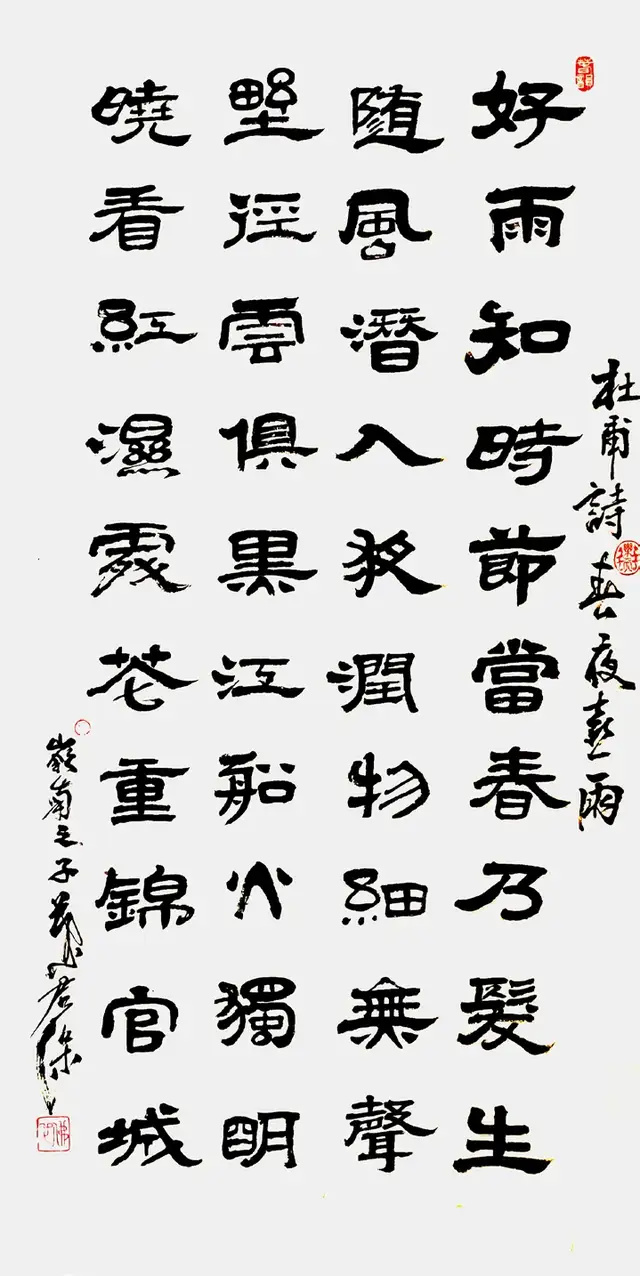 杜甫詩 春夜喜雨
好雨知時節當春乃髮生
随風潛入夜潤物細無聲
野徑雲俱黑江船火獨明
曉看紅濕處花重錦官城
嶺南之子